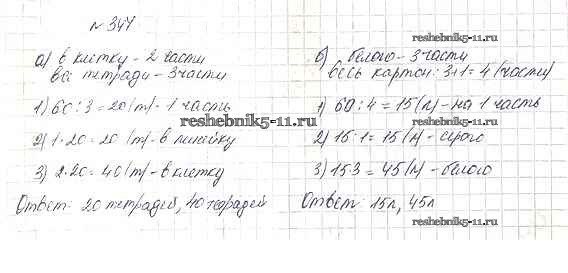 № 347
reshebnik5-11.ru
а) в клетку - 2 части
все тетради - 3 части
1) 60 : 3 = 20 (т) - 1 часть
reshebnik5-11.ru
2) 1·20 = 20 (т) - в линейку
3) 2·20 = 40 (т) - в клетку
Ответ: 20 тетрадей, 40 тетрадей
б) белого - 3 части
весь картон: 3+1 = 4 (части)
1) 60 : 4 = 15 (л) - на 1 часть
reshebnik5-11.ru
2) 15·1 = 15 (л) - серого
3) 15·3 = 45 (л) - белого
Ответ: 15л, 45л
reshebnik5-11.ru